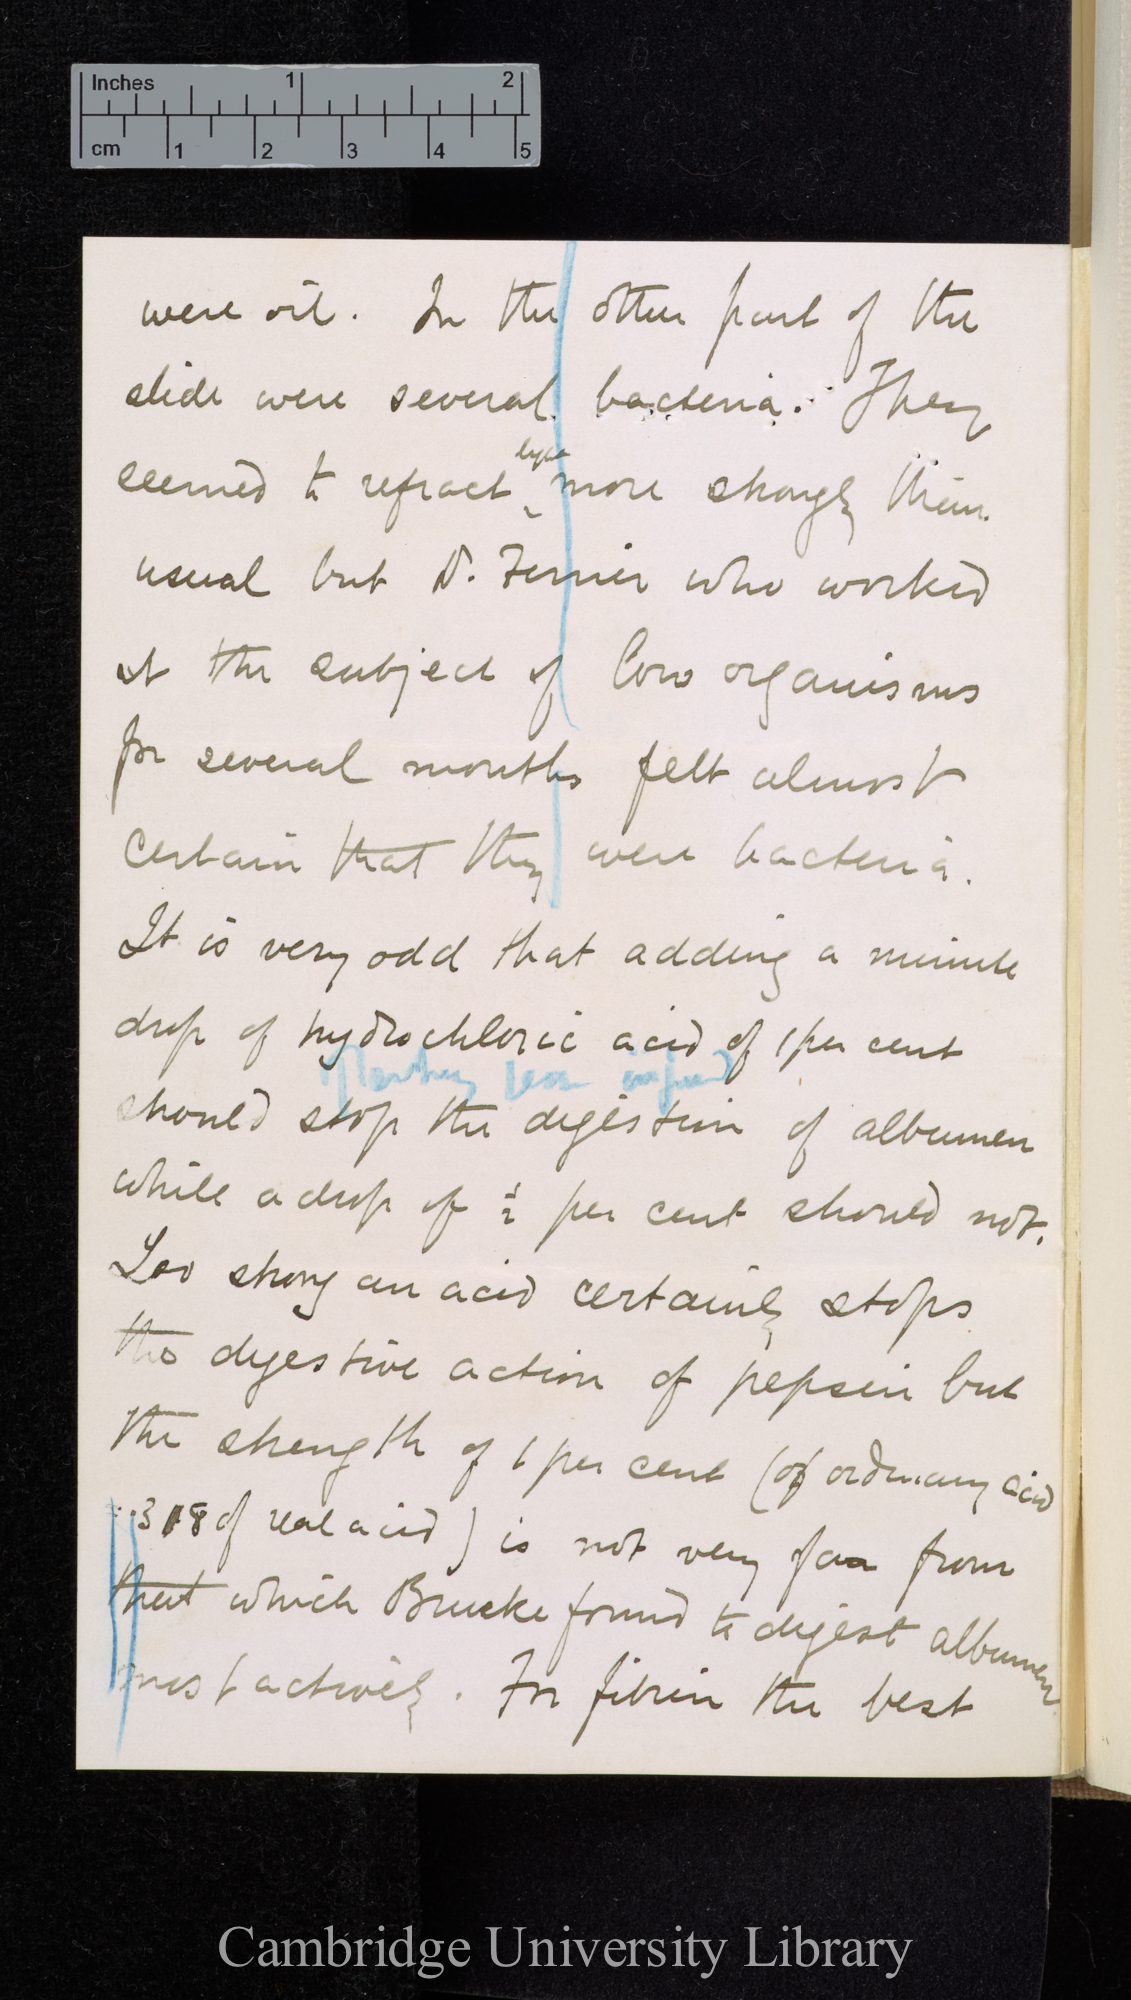 Inches 1 2
cm 1 2 3 4 5
were oil. In the other part of the
slide were several bacteria. They
light
seemed to refract more strongly than
usual but Dr. Ferrier who worked
at the subject of low organisms
for several months felt almost
certain that they were bacteria.
It is very odd that adding a minute
drop of hydrochloric acid of 1 per cent
should stop the digestion of albumen
while a drop of ½ per cent should not.
Too strong an acid certainly stops
the digestive action of pepsin but
the strength of 1 per cent (of ordinary acid
.318 of real acid) is not very far from
that which Brucke found to digest albumen
most actively. For fibrin the best
Cambridge University Library